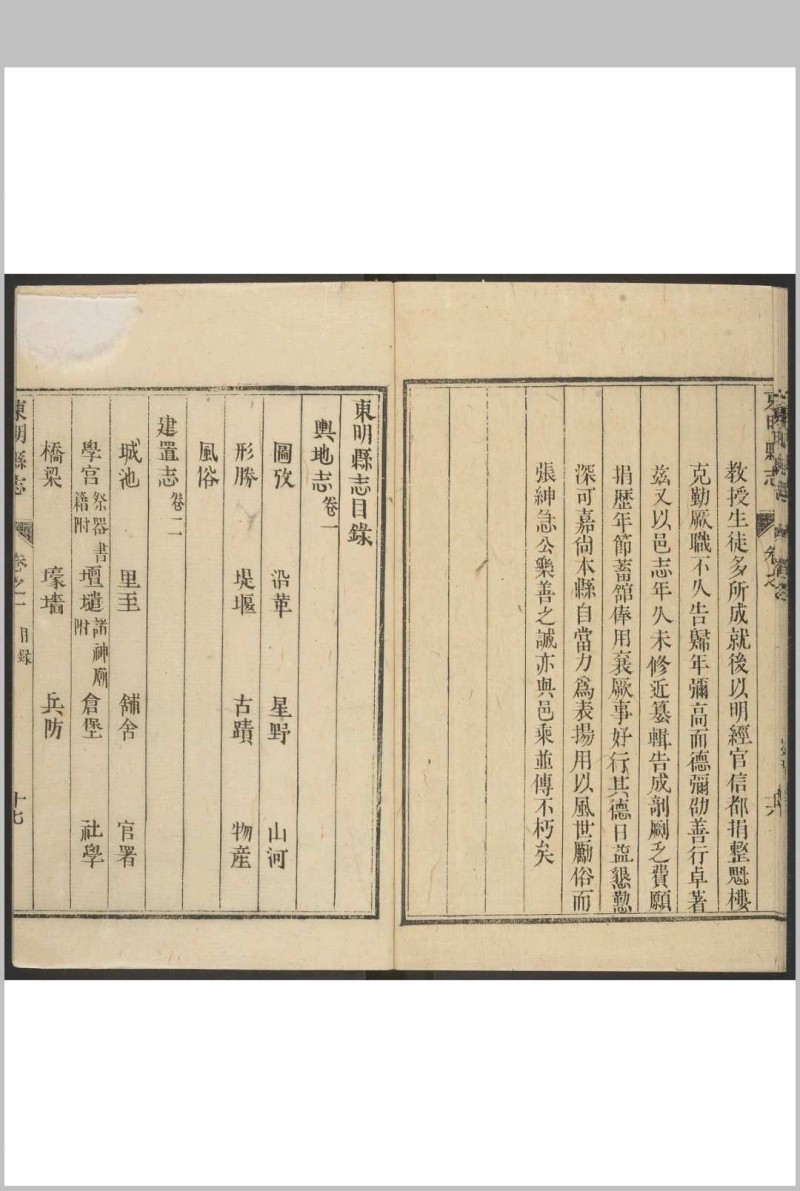 東明縣志
教授生徒多所成就後以明經官信都捐整魁樓
克勤厥職不久告歸年彌高而德彌劭善行卓著
茲又以邑志年久未修近纂輯告成剞劂乏費願
捐歷年節蓄舘俸用襄厥事好行其德日益懇懃
深可嘉尙本縣自當力爲表揚用以風世勵俗而
張紳急公樂善之誠亦與邑乘並傳不朽矣
東明縣志目錄
輿地志 卷一
圖攷 沿革 星野 山河
形勝 堤堰 古蹟 物産
風俗
建置志 卷二
城池 里至 舖舍 官署
學宮 祭器書籍附 壇壝 諸神廟附 倉堡 社學
橋梁 壕墻 兵防
東明縣志 卷之一 目錄 十七